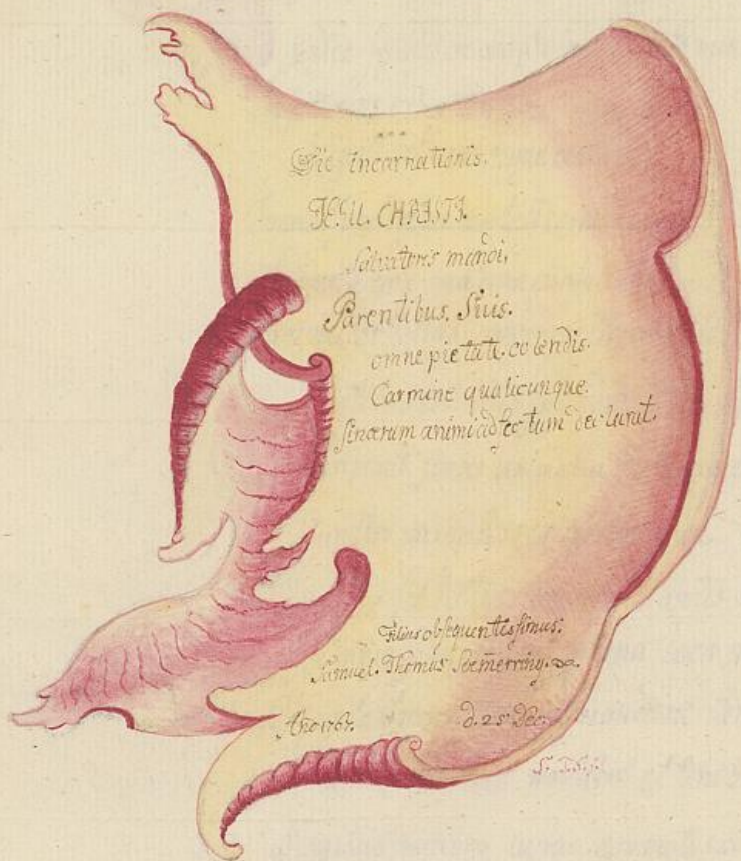 Die incarnationis.
JESU. CHRISTI.
Salvatoris mundi,
Parentibus. Suis.
omne pietate. colendis.
Carmine qualicunque.
sincerum animi adfectum declarat.
Filius obsequentissimus:
Samuel. Thomas Soem̅erring.
Año 1767. d. 25 Dec.
S. T. S.